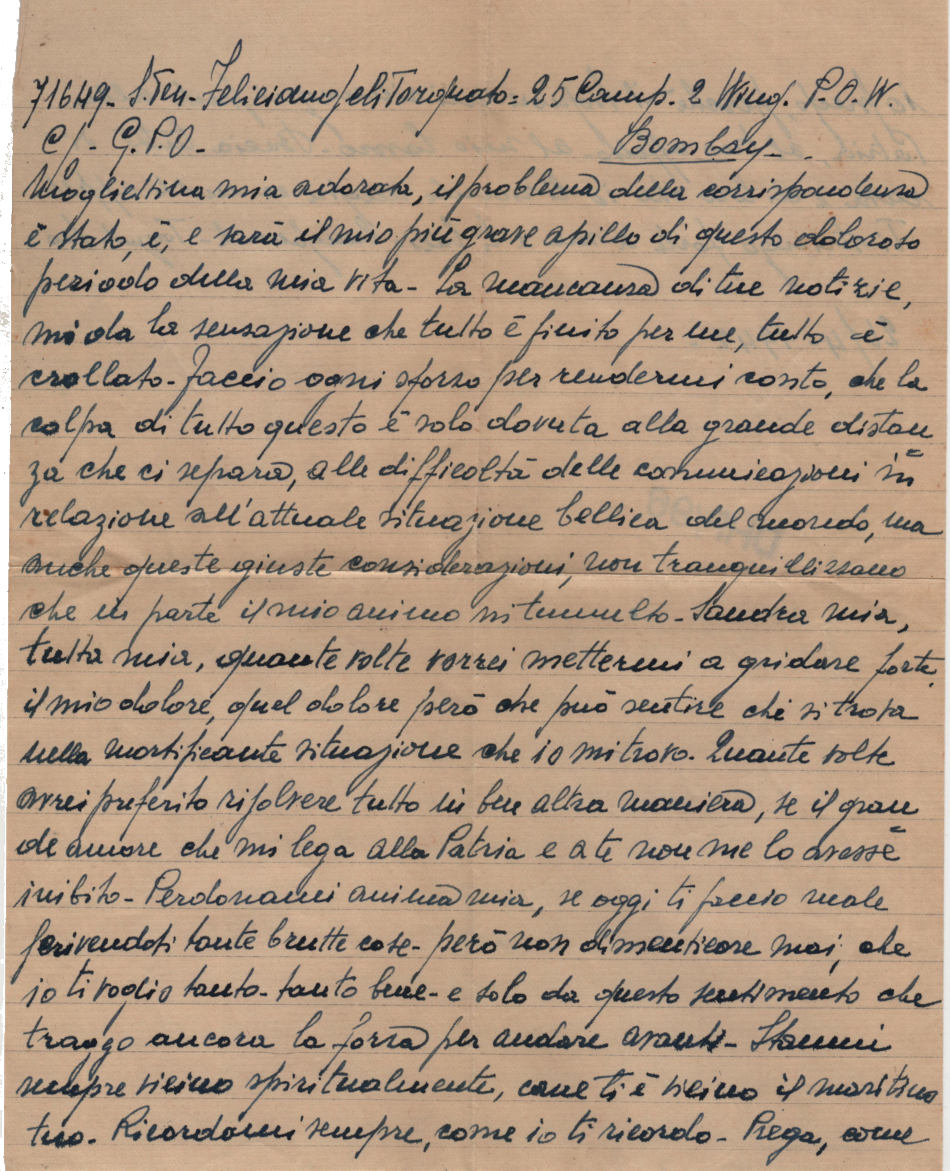 71649 - S.Ten. Feliciangeli Torquato = 25 Camp. 2 Wing. P.O.W.
C/- G.P.O - Bombay -
Mogliettina mia adorata, il problema della corrispondenza
è stato, è, e sarà il mio più grave apillo di questo doloroso
periodo della mia vita - La mancanza di tue notizie,
mi da la sensazione che tutto è finito per me, tutto è
crollato - Faccio ogni sforzo per rendermi conto, che la
colpa di tutto questo è solo dovuta alla grande distan
za che ci separa, alle difficoltà delle comunicazioni in
relazione all'attuale situazione bellica del mondo, ma
anche queste giuste considerazioni, non tranquillizzano
che in parte il mio animo in tumulto - Sandra mia,
tutta mia, quante volte vorrei mettermi a gridare forte
il mio dolore, quel dolore però che può sentire chi si trova
nella mortificante situazione che io mi trovo. Quante volte
avrei preferito risolvere tutto in ben altra maniera, se il gran
de amore che mi lega alla Patria e a te non me lo avesse
inibito - Perdonami anima mia, se oggi ti faccio male
scrivendoti tante brutte cose - però non dimenticare mai, che
io ti voglio tanto - tanto bene - e solo da questo sentimento che
traggo ancora la forza per andare avanti - Stammi
sempre vicino spiritualmente, come ti è vicino il maritino
tuo. Ricordami sempre, come io ti ricordo - Prega, come